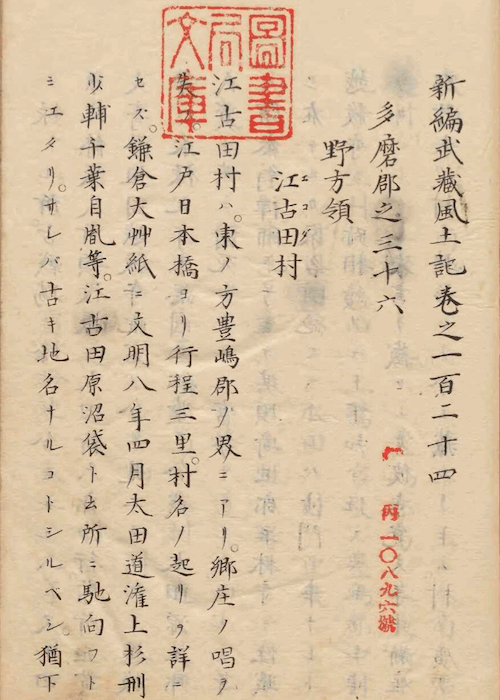 新編武藏風土記巻之一百二十四
多磨郡之三十六
野方領
江古田村
エコダ
江古田村ハ。東ノ方豊嶋郡ノ界ニアリ。郷庄ノ唱ヲ
失フ。江戸日本橋ヨリ行程三里。村名ノ起リヲ詳ニ
セズ。鎌倉大艸紙ニ文明八年四月太田道潅上杉刑
少輔千葉自胤等。江古田原沼袋ト云所ニ馳向フト
ミエタリ。サレバ古キ地名ナルコトシルベシ。猶下
圖書局文庫
丙一〇八九六號